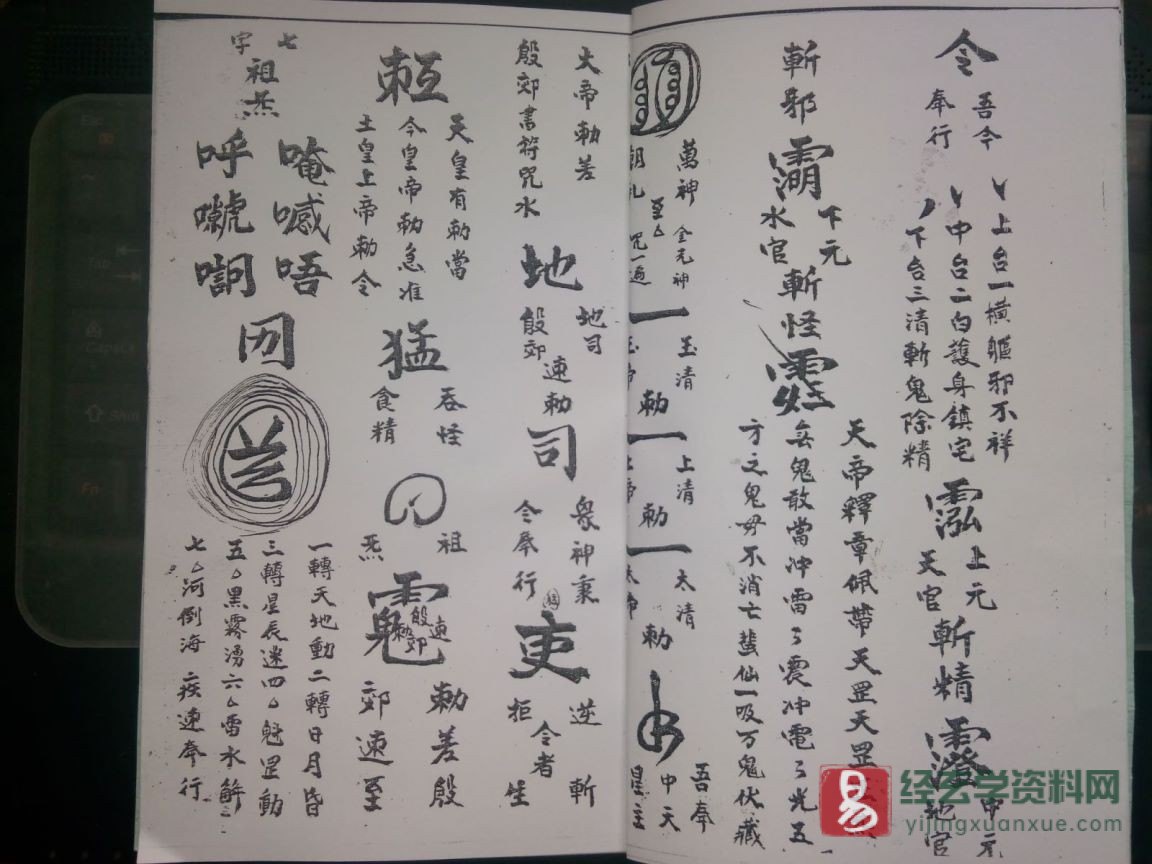 令
吾今
奉行
上台一橫驅邪不祥
中台二白護身鎮宅
下台三清斬鬼除精
上元
天官
斬精
中元
地官
斬邪
下元
水官
斬怪
天帝釋章佩帶天罡天罡
無鬼敢當沖雷々震沖電々光五
方之鬼毋不消亡蜚仙一吸万鬼伏藏
萬神
金元神
咒一遍
一
玉清
玉帝
勅
一
上清
上帝
勅
一
太清
太帝
勅
吾奉
中天
皇主
大帝勅差
殷郊書符咒水
地
地司
殷郊
速勅
司
眾神秉
令奉行
吏
逆
令者
拒
斬
生
天皇有勅當
今皇帝勅急准
土皇上帝勅令
猛
吞怪
食精
祖
炁
殷郊
速
勅差殷
郊速至
七
字
祖
炁
唵
呼
嘘
唔
一轉天地動二轉日月昏
三轉星辰迷四△魁罡動
五△黑霧湧六△雷水解
七△河倒海 疾速奉行
易
经玄学资料网
yijingxuanxue.com